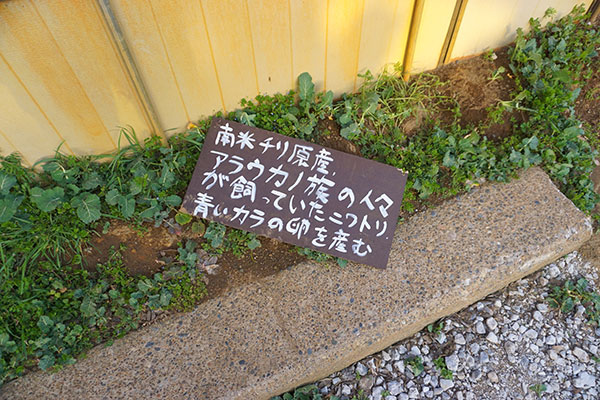 南米チリ原産、
アラウカノ族の人々
が飼っていたニワトリ
青いカラの卵を産む